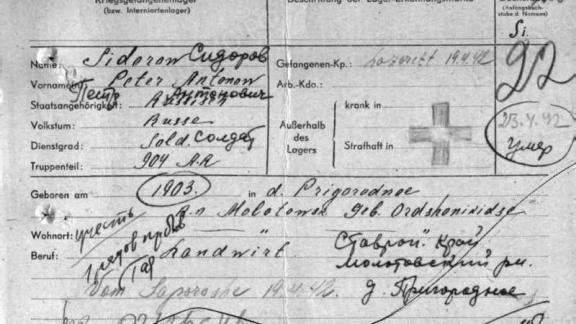 Kriegsgefangenenlager
(bzw. Interniertenlager)
Beschriftung der Lager-Erkennungsmarke
(Anfangsbuch-
stabe d. Namens)
Si.
Name: Sidorow Сидоров
Vorname: Peter Antonow
Петр Антонович
Staatsangehörigkeit: Russisch
Volkstum: Russe
Dienstgrad: Sold. Солдат
Truppenteil: 904 A.R
Gefangenen-Kp.: Lazarett 19.4.42
Arb.-Kdo.:
Außerhalb
des
Lagers
krank in
Strafhaft in
92
23.4.42
умер
Geboren am 1903. in d. Prigorodnoe
Wohnort: R-n Molotowsk Geb. Ordshonikidse
Beruf: Landwirt "
Ставроп. Край
Молотовский рн.
д Пригородное
учесть
Vom Saporoshe 19.4.42.